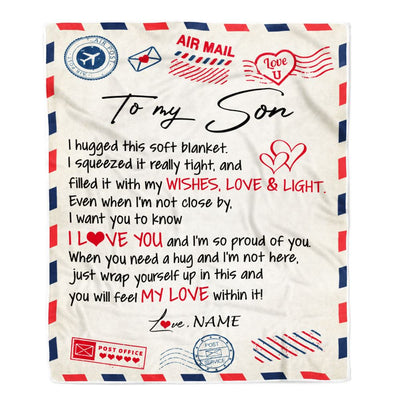 AIR MAIL
Love
U
To my Son
I hugged this soft blanket.
I squeezed it really tight, and
filled it with my WISHES, LOVE & LIGHT.
Even when I'm not close by,
I want you to know
I L❤VE YOU and I'm so proud of you.
When you need a hug and I'm not here,
just wrap yourself up in this and
you will feel MY LOVE within it!
Love, NAME
POST OFFICE
POST
SERVICE